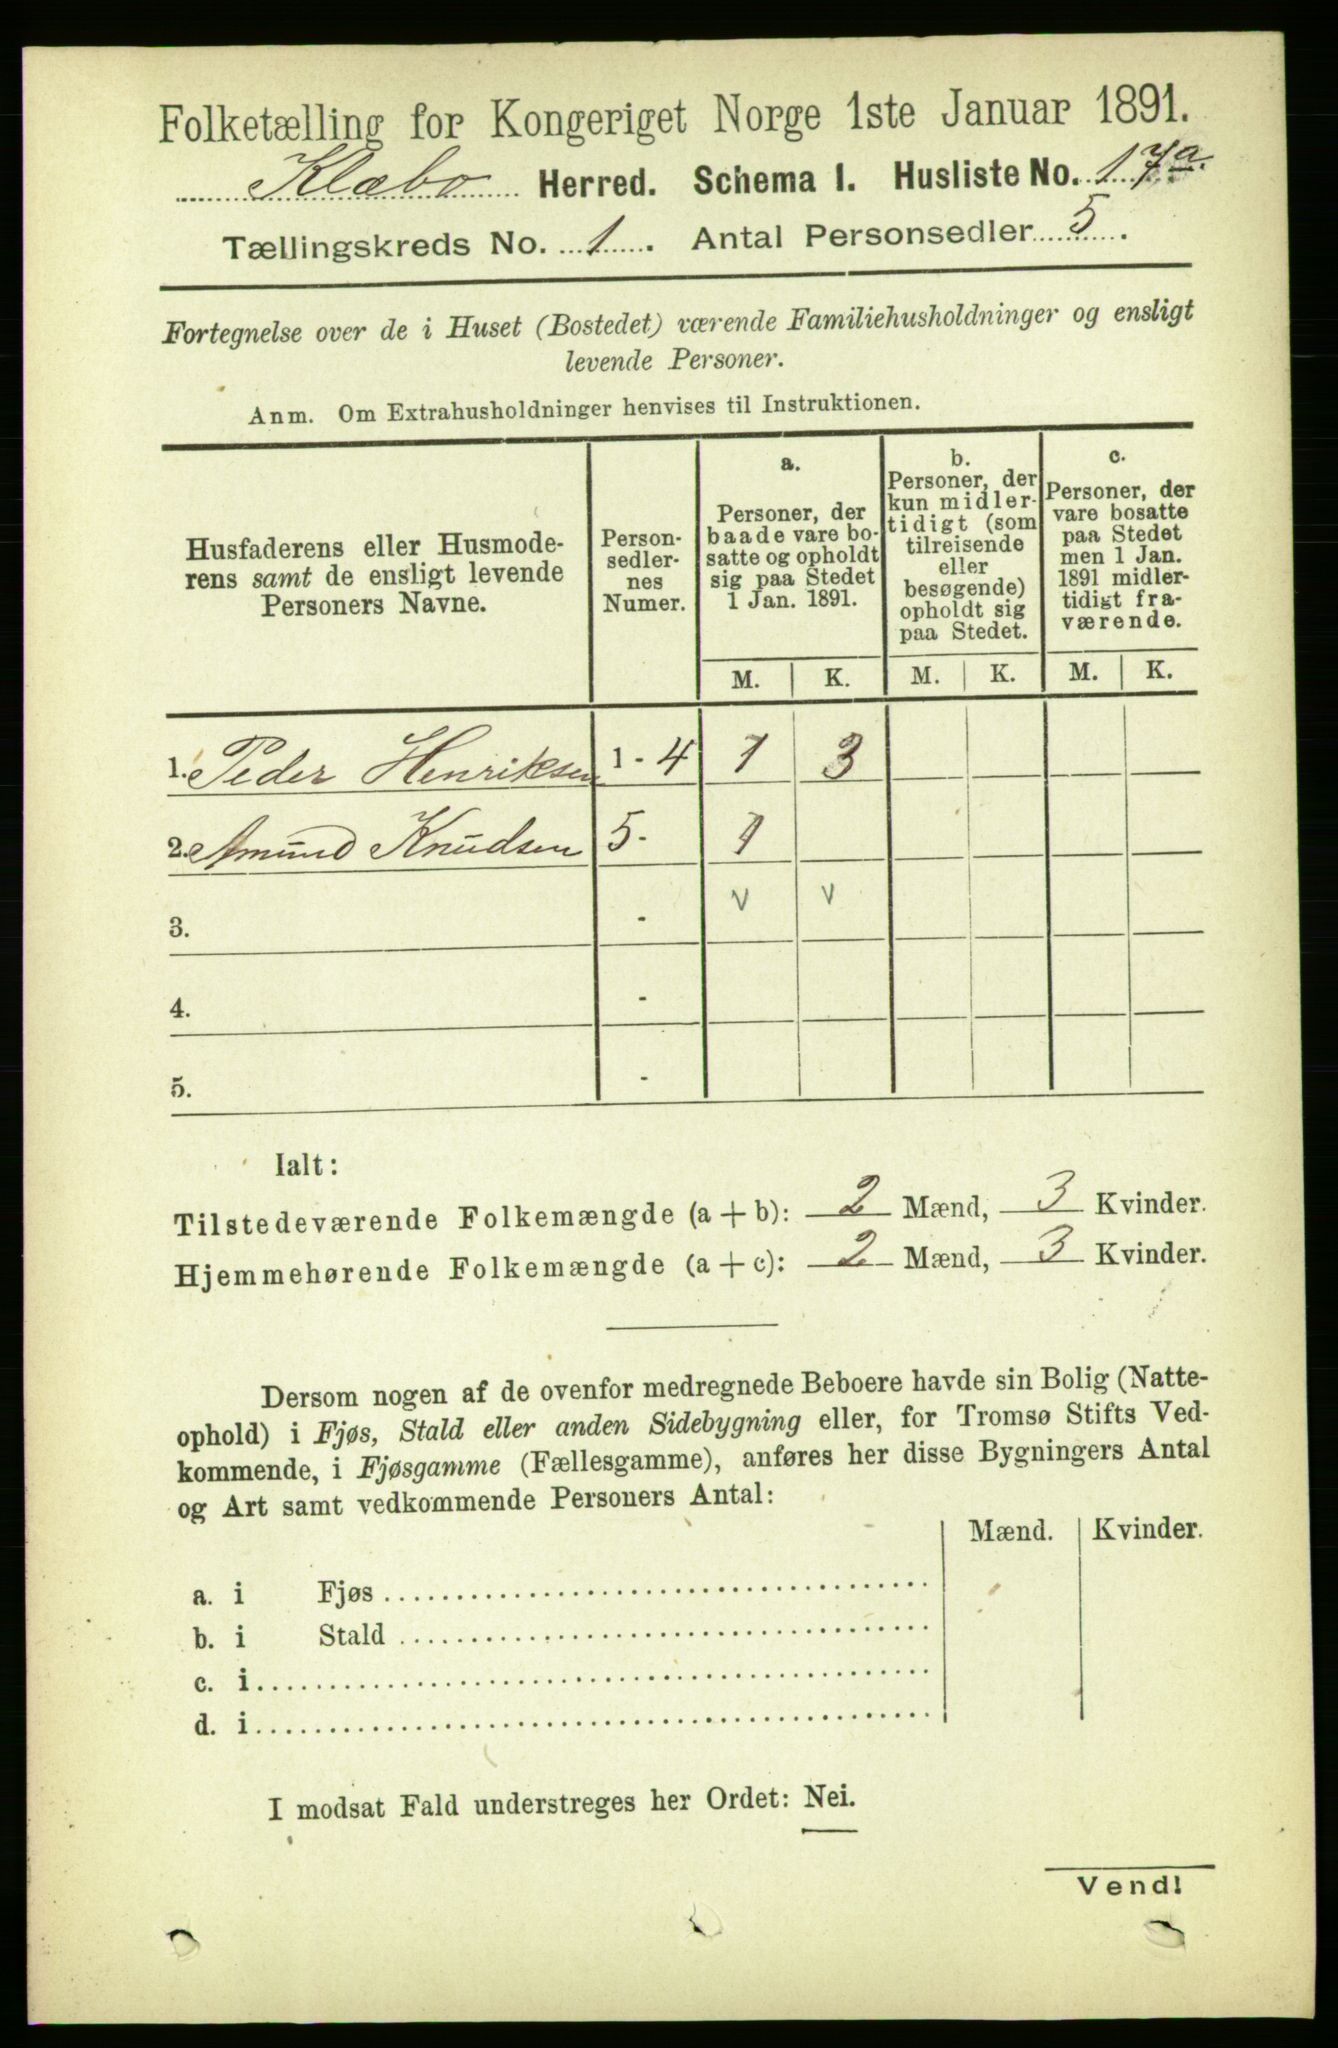 Folketælling for Kongeriget Norge 1ste Januar 1891.
Klæbo Herred. Schema I. Husliste No. 17a.
Tællingskreds No. 1. Antal Personsedler 5.
Fortegnelse over de i Huset (Bostedet) værende Familiehusholdninger og ensligt
levende Personer.
Anm. Om Extrahusholdninger henvises til Instruktionen.
Husfaderens eller Husmode-
rens samt de ensligt levende
Personers Navne.
Person-
sedler-
nes
Numer.
a.
Personer, der
baade vare bo-
satte og opholdt
sig paa Stedet
1 Jan. 1891.
b.
Personer, der
kun midler-
tidigt (som
tilreisende
eller
besøgende)
opholdt sig
paa Stedet.
c.
Personer, der
vare bosatte
paa Stedet
men 1 Jan.
1891 midler-
tidigt fra-
værende.
M. K. M. K. M. K.
1. Peder Henriksen 1 - 4 1 3
2. Amund Knudsen 5 - 1
3. - v v
4. -
5. -
Ialt:
Tilstedeværende Folkemængde (a + b): 2 Mænd, 3 Kvinder.
Hjemmehørende Folkemængde (a + c): 2 Mænd, 3 Kvinder.
Dersom nogen af de ovenfor medregnede Beboere havde sin Bolig (Natte-
ophold) i Fjøs, Stald eller anden Sidebygning eller, for Tromsø Stifts Ved-
kommende, i Fjøsgamme (Fællesgamme), anføres her disse Bygningers Antal
og Art samt vedkommende Personers Antal:
Mænd. Kvinder.
a. i Fjøs
b. i Stald
c. i
d. i
I modsat Fald understreges her Ordet: Nei.
Vend!